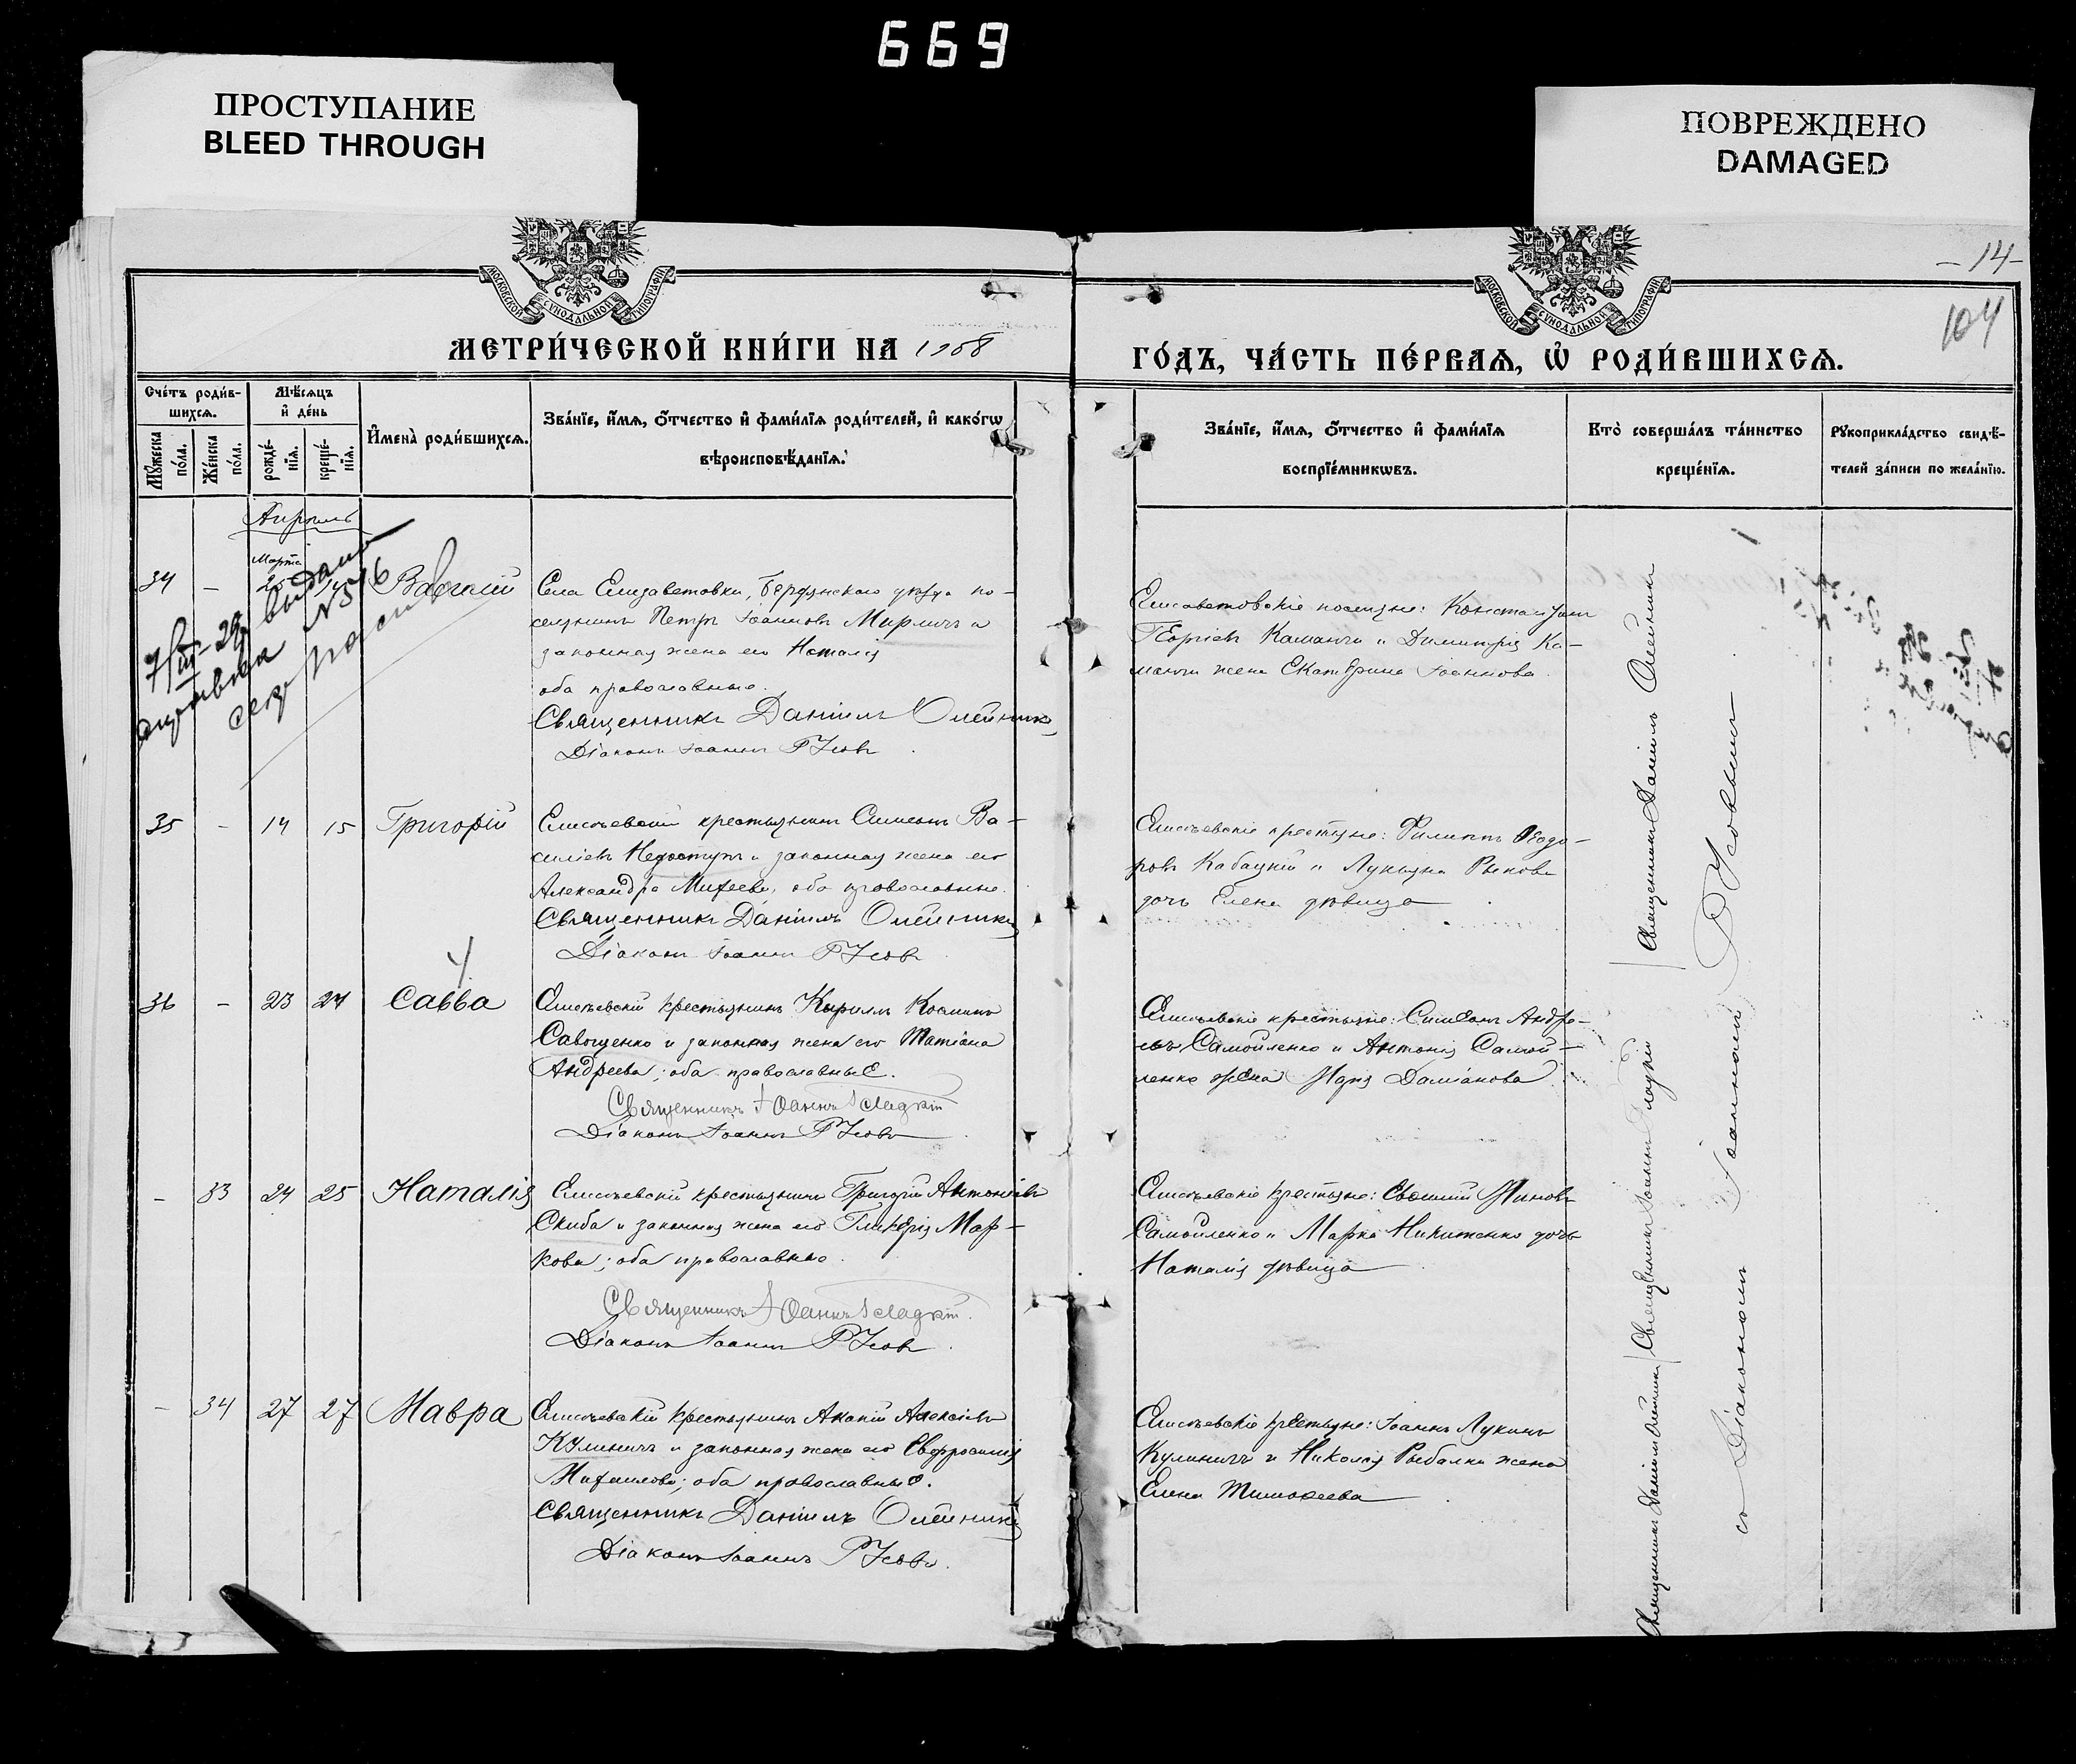 669
ПРОСТУПАНИЕ
BLEED THROUGH
ПОВРЕЖДЕНО
DAMAGED
МОСКОВСКОЙ СѴНОДАЛЬНОЙ ТИПОГРАФІИ
МОСКОВСКОЙ СѴНОДАЛЬНОЙ ТИПОГРАФІИ
-14-
104
МЕТРИ́ЧЕСКОЙ КНИ́ГИ НА 1908
ГО́ДЪ, ЧА́СТЬ ПЕ́РВАѦ, Ѡ РОДИ́ВШИХСѦ.
Сче́тъ роди́в-
шихсѧ.
Мꙋжеска по́ла.
Же́нска по́ла.
Мѣ́сѧцъ
и҆ де́нь
рожде́-
нїѧ.
креще́-
нїѧ.
И҆мена̀ роди́вшихсѧ.
Зва́нїе, и҆́мѧ, ѻ҆́тчество и҆ фами́лїѧ роди́телей, и҆ како́гѡ
вѣроисповѣ́данїѧ.
Зва́нїе, и҆́мѧ, ѻ҆́тчество и҆ фами́лїѧ
воспрїе́мникѡвъ.
Кто̀ соверша́лъ та́инство
креще́нїѧ.
Рꙋкоприкла́дство свидѣ́-
телей за́писи по жела́нїю.
Апрѣль
Марта
34 - 25 Василій
Села Елизаветовки, Бердянскаго уѣзда по-
селянинъ Петръ Іоанновъ Мирличъ и
законная жена его Наталія
оба православные.
Священникъ Даніилъ Олейникъ
Діаконъ Іоаннъ РУсовъ
Елисаветовскіе поселяне: Константинъ
Георгіевъ Каманчи и Димитрія Ка-
манчи жена Екатерина Іоаннова.
35 - 14 15 Григорій
Елисѣевскій крестьянинъ Симеонъ Ва-
силіевъ Недоступъ и законная жена его
Александра Михеева, оба православные.
Священникъ Даніилъ Олейникъ
Діаконъ Іоаннъ РУсовъ
Елисѣевскіе крестьяне: Филиппъ Ѳеодо-
ровъ Кабацкій и Лукьяна Рыкова
дочь Елена дѣвица
36 - 23 24 Савва
Елисѣевскій крестьянинъ Кириллъ Косминъ
Савощенко и законная жена его Татіана
Андреева; оба православные.
Священникъ Іоаннъ Сладкій
Діаконъ Іоаннъ РУсовъ
Елисѣевскіе крестьяне: Симеонъ Андре-
евъ Самойленко и Антонія Самой-
ленко жена Марія Даміанова
- 33 24 25 Наталія
Елисѣевскій крестьянинъ Григорій Антоніевъ
Скиба и законная жена его Гликерія Мар-
кова; оба православные.
Священникъ Іоаннъ Сладкій.
Діаконъ Іоаннъ РУсовъ
Самойленко и Марка Никитенко дочь
Наталія дѣвица
- 34 27 27 Мавра
Елисѣевскій крестьянинъ Акакій Алексіевъ
Кулиничъ и законная жена его Евфросинія
Михаилова; оба православные.
Священникъ Даніилъ Олейникъ
Діаконъ Іоаннъ РУсовъ.
Елисѣевскіе крестьяне: Іоаннъ Лукинъ
Кулиничъ и Николая Рыбалки жена
Елена Тимоѳеева
Священникъ Даніилъ Олейникъ
Священникъ Іоаннъ Сладкій
Священникъ Даніилъ Олейникъ
съ Діакономъ Іоанномъ РУсовымъ